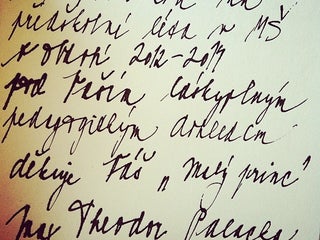 předškolní léta v MŠ
v období 2012-2014
pod Vaším láskyplným
pedagogickým dohledem
děkuje Váš „Malý princ“
Max Theodor